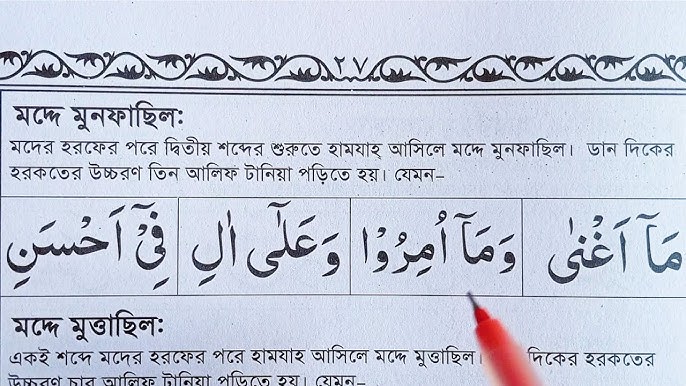 ٢٧
মদ্দে মুনফাছিল:
মদের হরফের পরে দ্বিতীয় শব্দের শুরুতে হামযাহ্ আসিলে মদ্দে মুনফাছিল। ডান দিকের
হরকতের উচ্চরণ তিন আলিফ টানিয়া পড়িতে হয়। যেমন-
مَآ اَغْنٰى وَمَآ اُمِرُوْا وَعَلٰٓى اٰلِ فِىْٓ اَحْسَنِ
মদ্দে মুত্তাছিল:
একই শব্দে মদের হরফের পরে হামযাহ আসিলে মদ্দে মুত্তাছিল। দিকের হরকতের
উচ্চরণ চার আলিফ টানিয়া পড়িতে হয়। যেমন-